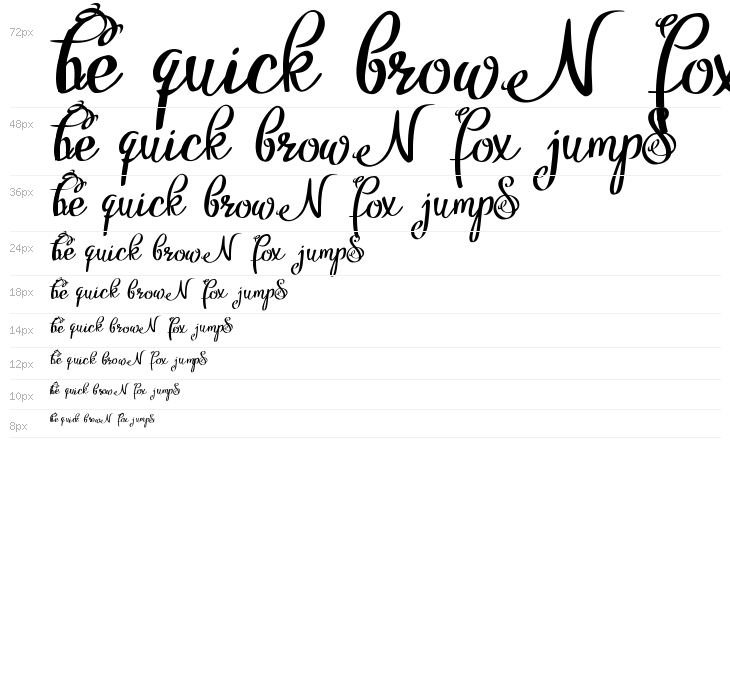 72px The quick browN fox
48px The quick browN fox jumpS
36px The quick browN fox jumpS
24px The quick browN fox jumpS
18px The quick browN fox jumpS
14px The quick browN fox jumpS
12px The quick browN fox jumpS
10px The quick browN fox jumpS
8px The quick browN fox jumpS